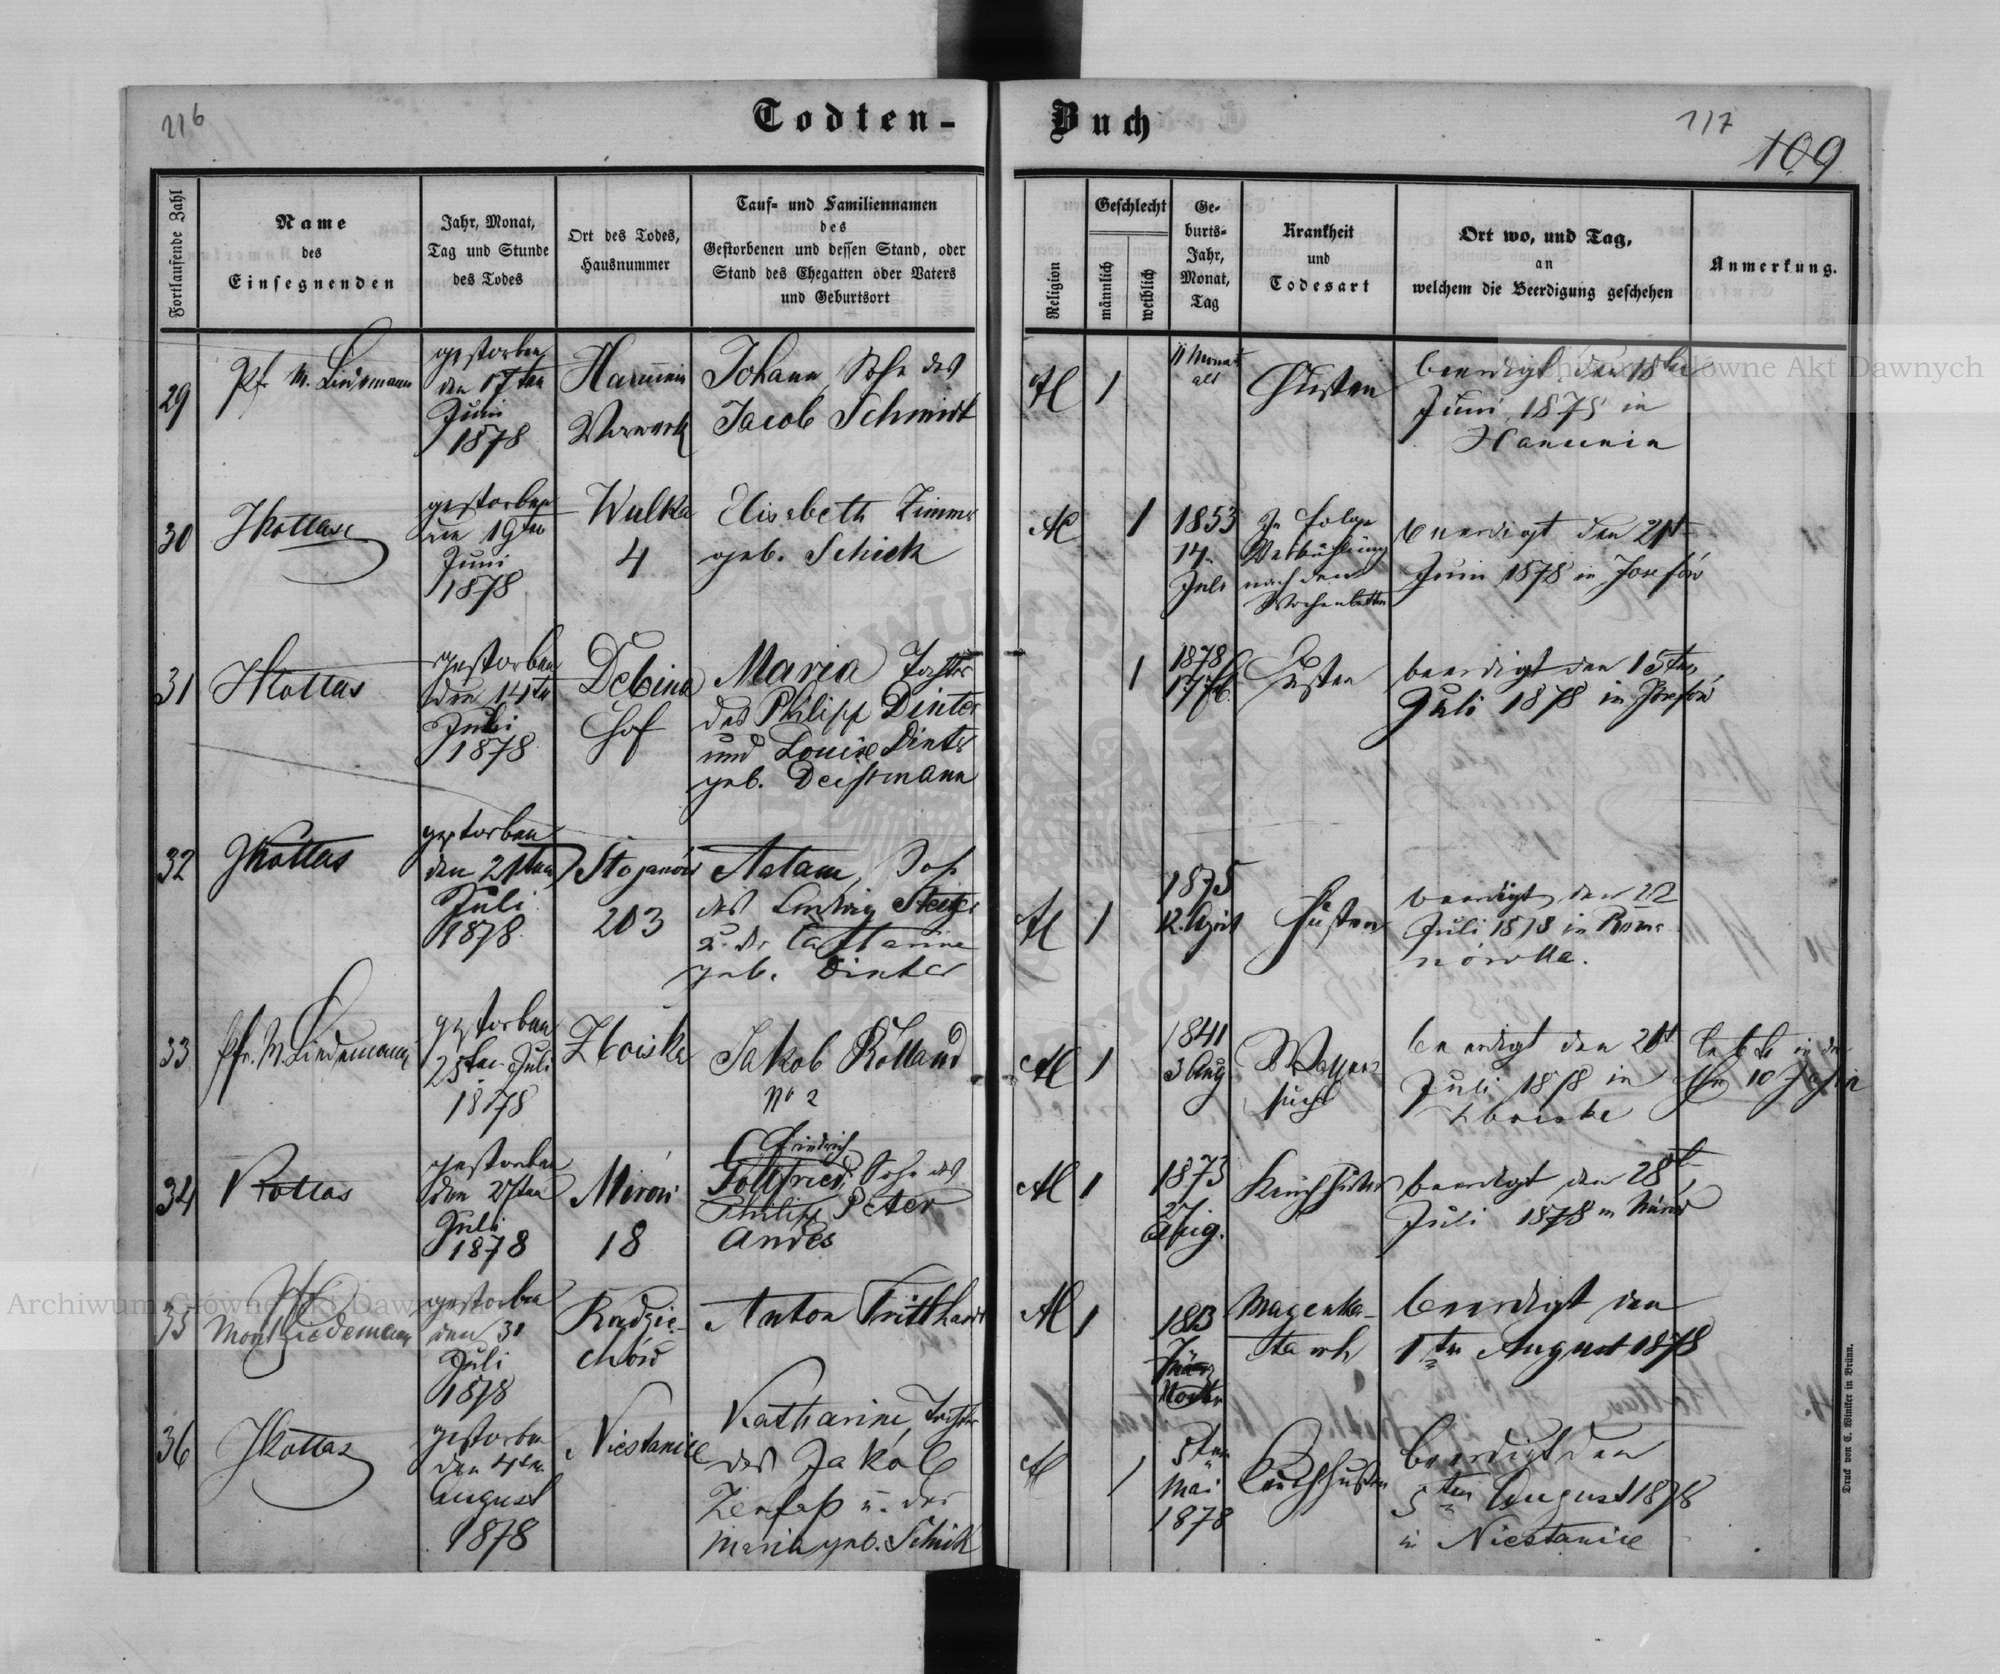 216
Todten-
Buch
117
109
Fortlaufende Zahl
Name
des
Einsegnenden
Jahr, Monat,
Tag und Stunde
des Todes
Ort des Todes,
Hausnummer
Tauf- und Familiennamen
des
Gestorbenen und dessen Stand, oder
Stand des Ehegatten oder Vaters
und Geburtsort
Religion
Geschlecht
männlich
weiblich
Ge-
burts-
Jahr,
Monat,
Tag
Krankheit
und
Todesart
Ort wo, und Tag,
an
welchem die Beerdigung geschehen
Anmerkung.
29
Pf. M. Lindemann
gestorben
den 17ten
Juni
1878
Hanunin
Vorwerk
Johann, Sohn des
Jacob Schmidt
1
11 Monat
alt
Husten
beerdigt den 18ten
Juni 1878 in
Hanunin
30
JKottas
gestorben
den 19ten
Juni
1878
Wulka
4
Elisabeth Zimmer
geb. Schick
1
1853
14.
Juli
In folge
Verkühlung
nach dem
Wochenbette
beerdigt den 21st
Juni 1878 in Josefów
31
JKottas
gestorben
den 14ten
Juli
1878
Debina
Hof
Maria Tochter
des Philipp Dinter
und Louise Dinter
geb. Deistmann
1
1878
Husten
beerdigt den 15ten
Juli 1878 in Josefów
32
JKottas
gestorben
den 21ten
Juli
1878
Stojanów
203
Adam, Sohn
des Ludwig Steiger
u. der Catharine
geb. Dinter
1
1875
12. April
Husten
beerdigt den 22
Juli 1878 in Roma
nówka.
33
Pfr. M. Lindemann
gestorben
25ten Juli
1878
Zboiska
Jakob Rolland
No 2
1
1841
3 Aug
Wasser
sucht
beerdigt den 26t
Juli 1878 in
Zboiska
lebte in der
Ehe 10 Jahre
34
Kottas
gestorben
den 27ten
Juli
1878
Mirów
18
Friedrich
Gottfried, Sohn des
Philipp Peter
Andes
1
1873
27
Aug.
Keuchhusten
beerdigt den 28t
Juli 1878 in Mirów
35
Pf
Mor. Lindemann
gestorben
den 31
Juli
1878
Radzie-
chów
Anton Tritthardt
1
1813
Magenka-
tarrh
beerdigt den
1ten August 1878
36
JKottas
gestorben
den 4ten
August
1878
Niestanice
Katharine, Tochter
des Jakob
Zerfaß u. der
Maria geb. Schick
1
5ten
Mai
1878
Keuchhusten
beerdigt den
5ten August 1878
in Niestanice
Druck von C. Winiker in Brünn.
Archiwum Główne Akt Dawnych
Archiwum Główne Akt Dawnych